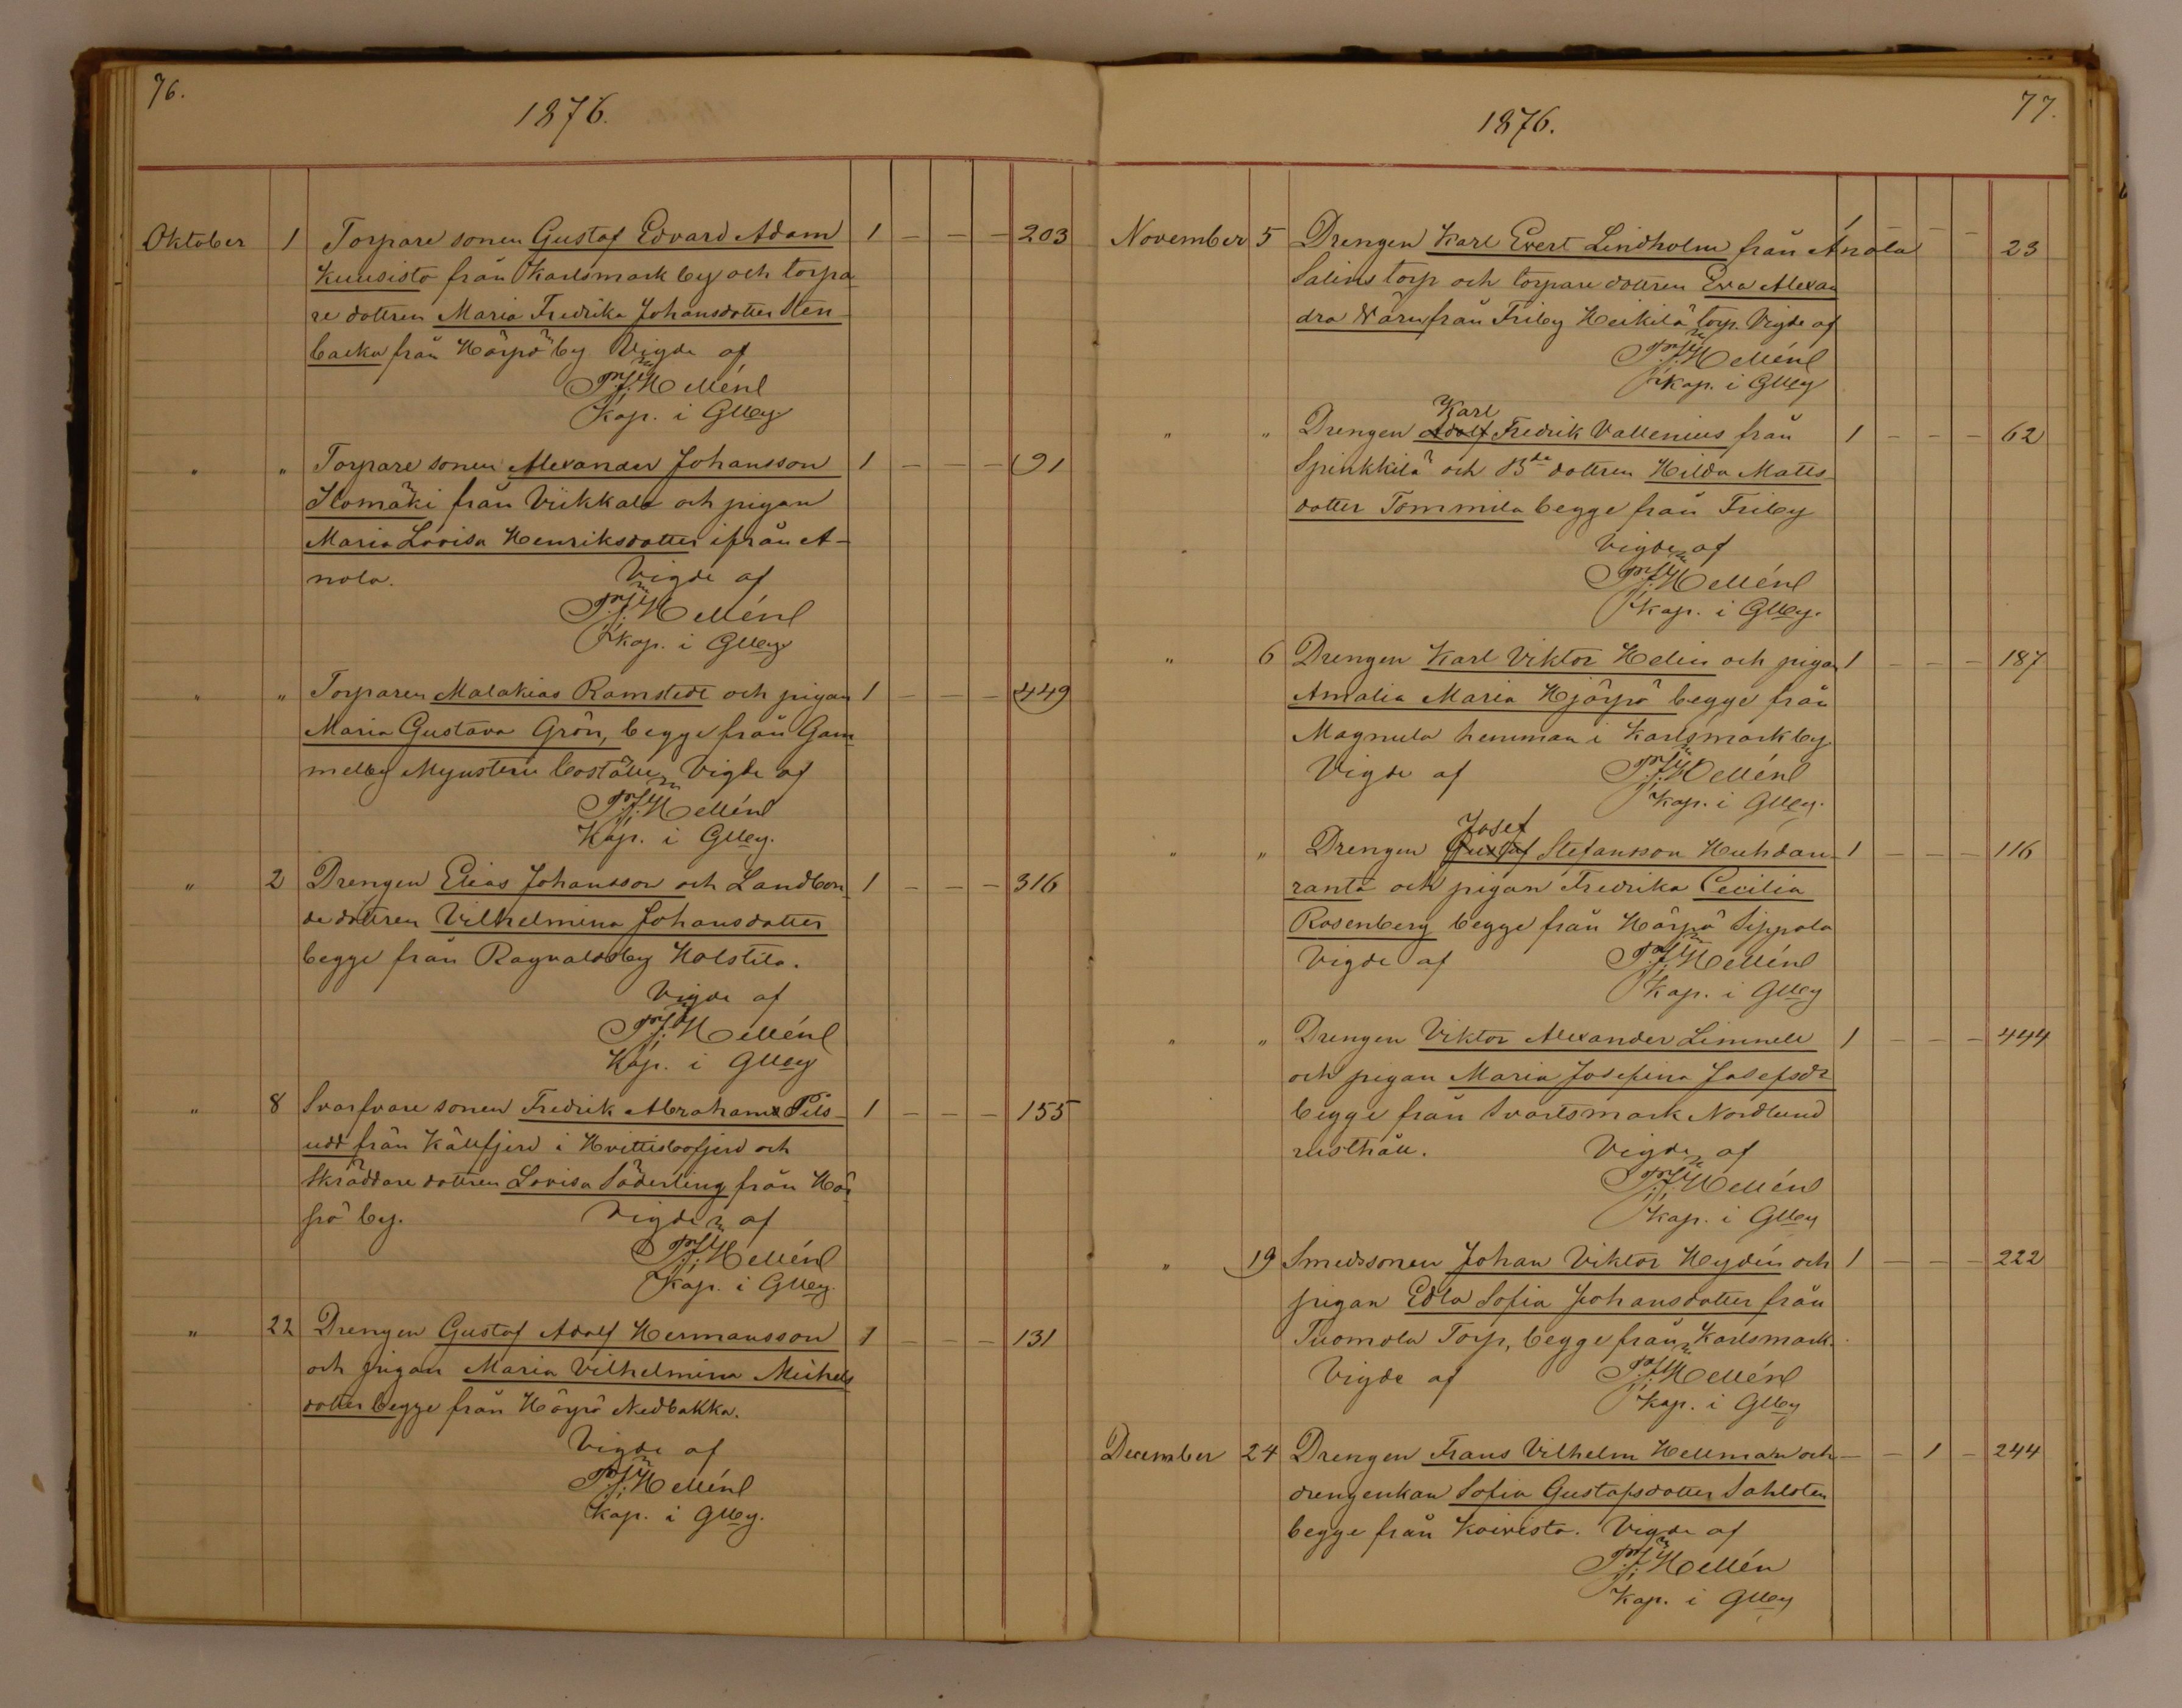 76.
1876.
Oktober 1 Torpare sonen Gustaf Edvard Adam 1 - - - 203
Kuusisto från Karlsmark by och torpa
re dottren Maria Fredrika Johansdotter Sten
backa från Hörpö by Vigde af
Hellén
Kap. i Glby
" " Torpare sonen Alexander Johansson 1 - - - 91
Ilomäki från Viikkala och pigan
Maria Lovisa Henriksdotter ifrån A-
nola. Vigde af
Hellén
Kap. i Glby
" " Torparen Malakias Ramstedt och pigan 1 - - - 449
Maria Gustava Grön, begge från Gam
melby Mynsteri boställe, Vigde af
Hellén
Kap. i Glby.
" 2 Drengen Elias Johansson och Landbon 1 - - - 316
de dottren Vilhelmina Johansdotter
begge från Ragvaldsby Holstila.
Vigde af
Hellén
Kap. i Glby
" 8 Svarfvare sonen Fredrik Abraham Pils- 1 - - - 155
udd från Källfjerd i Hvittisbofjerd och
Skräddare dottren Lovisa Söderling från Hör
pö by. Vigde af
Hellén
Kap. i Glby.
" 22 Drengen Gustaf Adolf Hermansson 1 - - - 131
och pigan Maria Vilhelmina Michels
dotter begge från Hörpö Nedbakka.
Vigde af
Hellén
Kap. i Glby.
77.
1876.
November 5 Drengen Karl Evert Lindholm från Anola 1 - - - 23
Salins torp och torpare dottren Eva Alexan
dra Värn från Friby Heikilä torp. Vigde af
Hellén
Kap. i Glby
Karl
" " Drengen Adolf Fredrik Vallenius från 1 - - - 62
Spinkkilä och Bde dottren Hilda Matts
dotter Tommila begge från Friby
Vigde af
Hellén
Kap. i Glby.
" 6 Drengen Karl Viktor Helin och pigan 1 - - - 187
Amalia Maria Hjörpö begge från
Magnula hemman i Karlsmark by.
Vigde af Hellén
Kap. i Glby.
Josef
" " Drengen Gustaf Stefansson Huhdan- 1 - - - 116
ranta och pigan Fredrika Cecilia
Rosenberg begge från Hörpö Sippola
Vigde af Hellén
Kap. i Glby
" " Drengen Viktor Alexander Limnell 1 - - - 444
och pigan Maria Josefina Josefsdr
begge från Svartsmark Nordlund
rusthåll. Vigde af
Hellén
Kap. i Glby
" 19 Smedssonen Johan Viktor Heydén och 1 - - - 222
pigan Edla Sofia Johansdotter från
Tuomola Torp, begge från Karlsmark.
Vigde af Hellén
Kap. i Glby
December 24 Drengen Frans Vilhelm Hellman och - - 1 - 244
drengenkan Sofia Gustafsdotter Sahlsten
begge från Koivisto. Vigde af
Hellén
Kap. i Glby